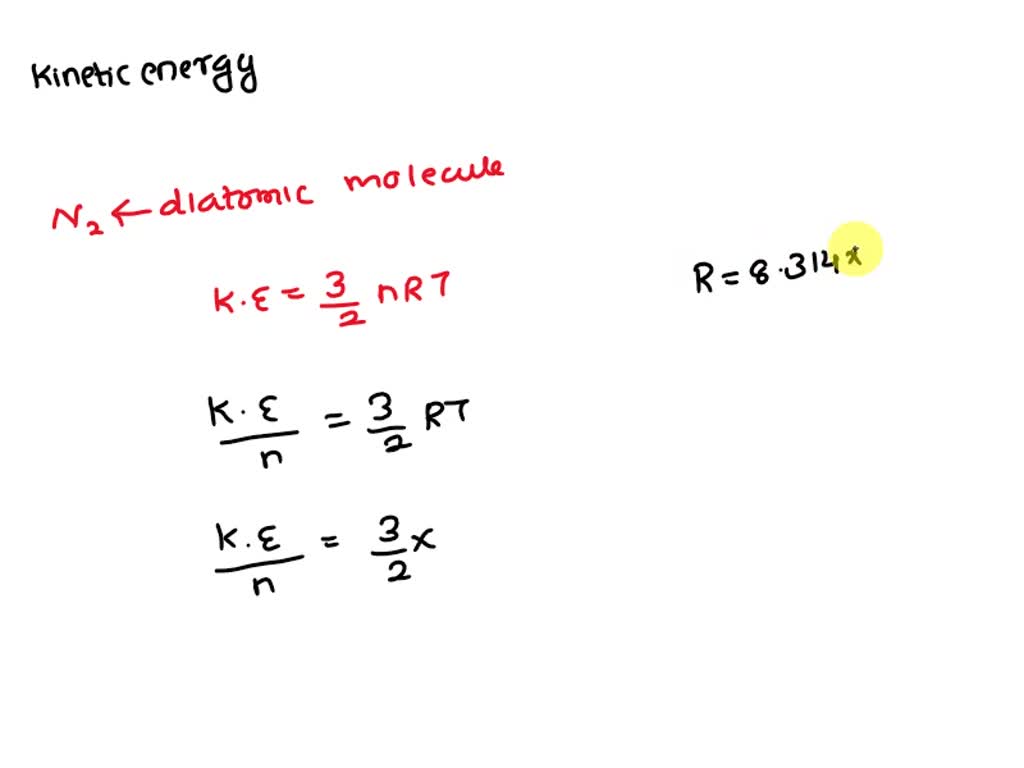 Kinetic energy
N₂ ← diatomic molecule
K.E = 3/2 nRT
R = 8.314 x
K.E/n = 3/2 RT
K.E/n = 3/2 x